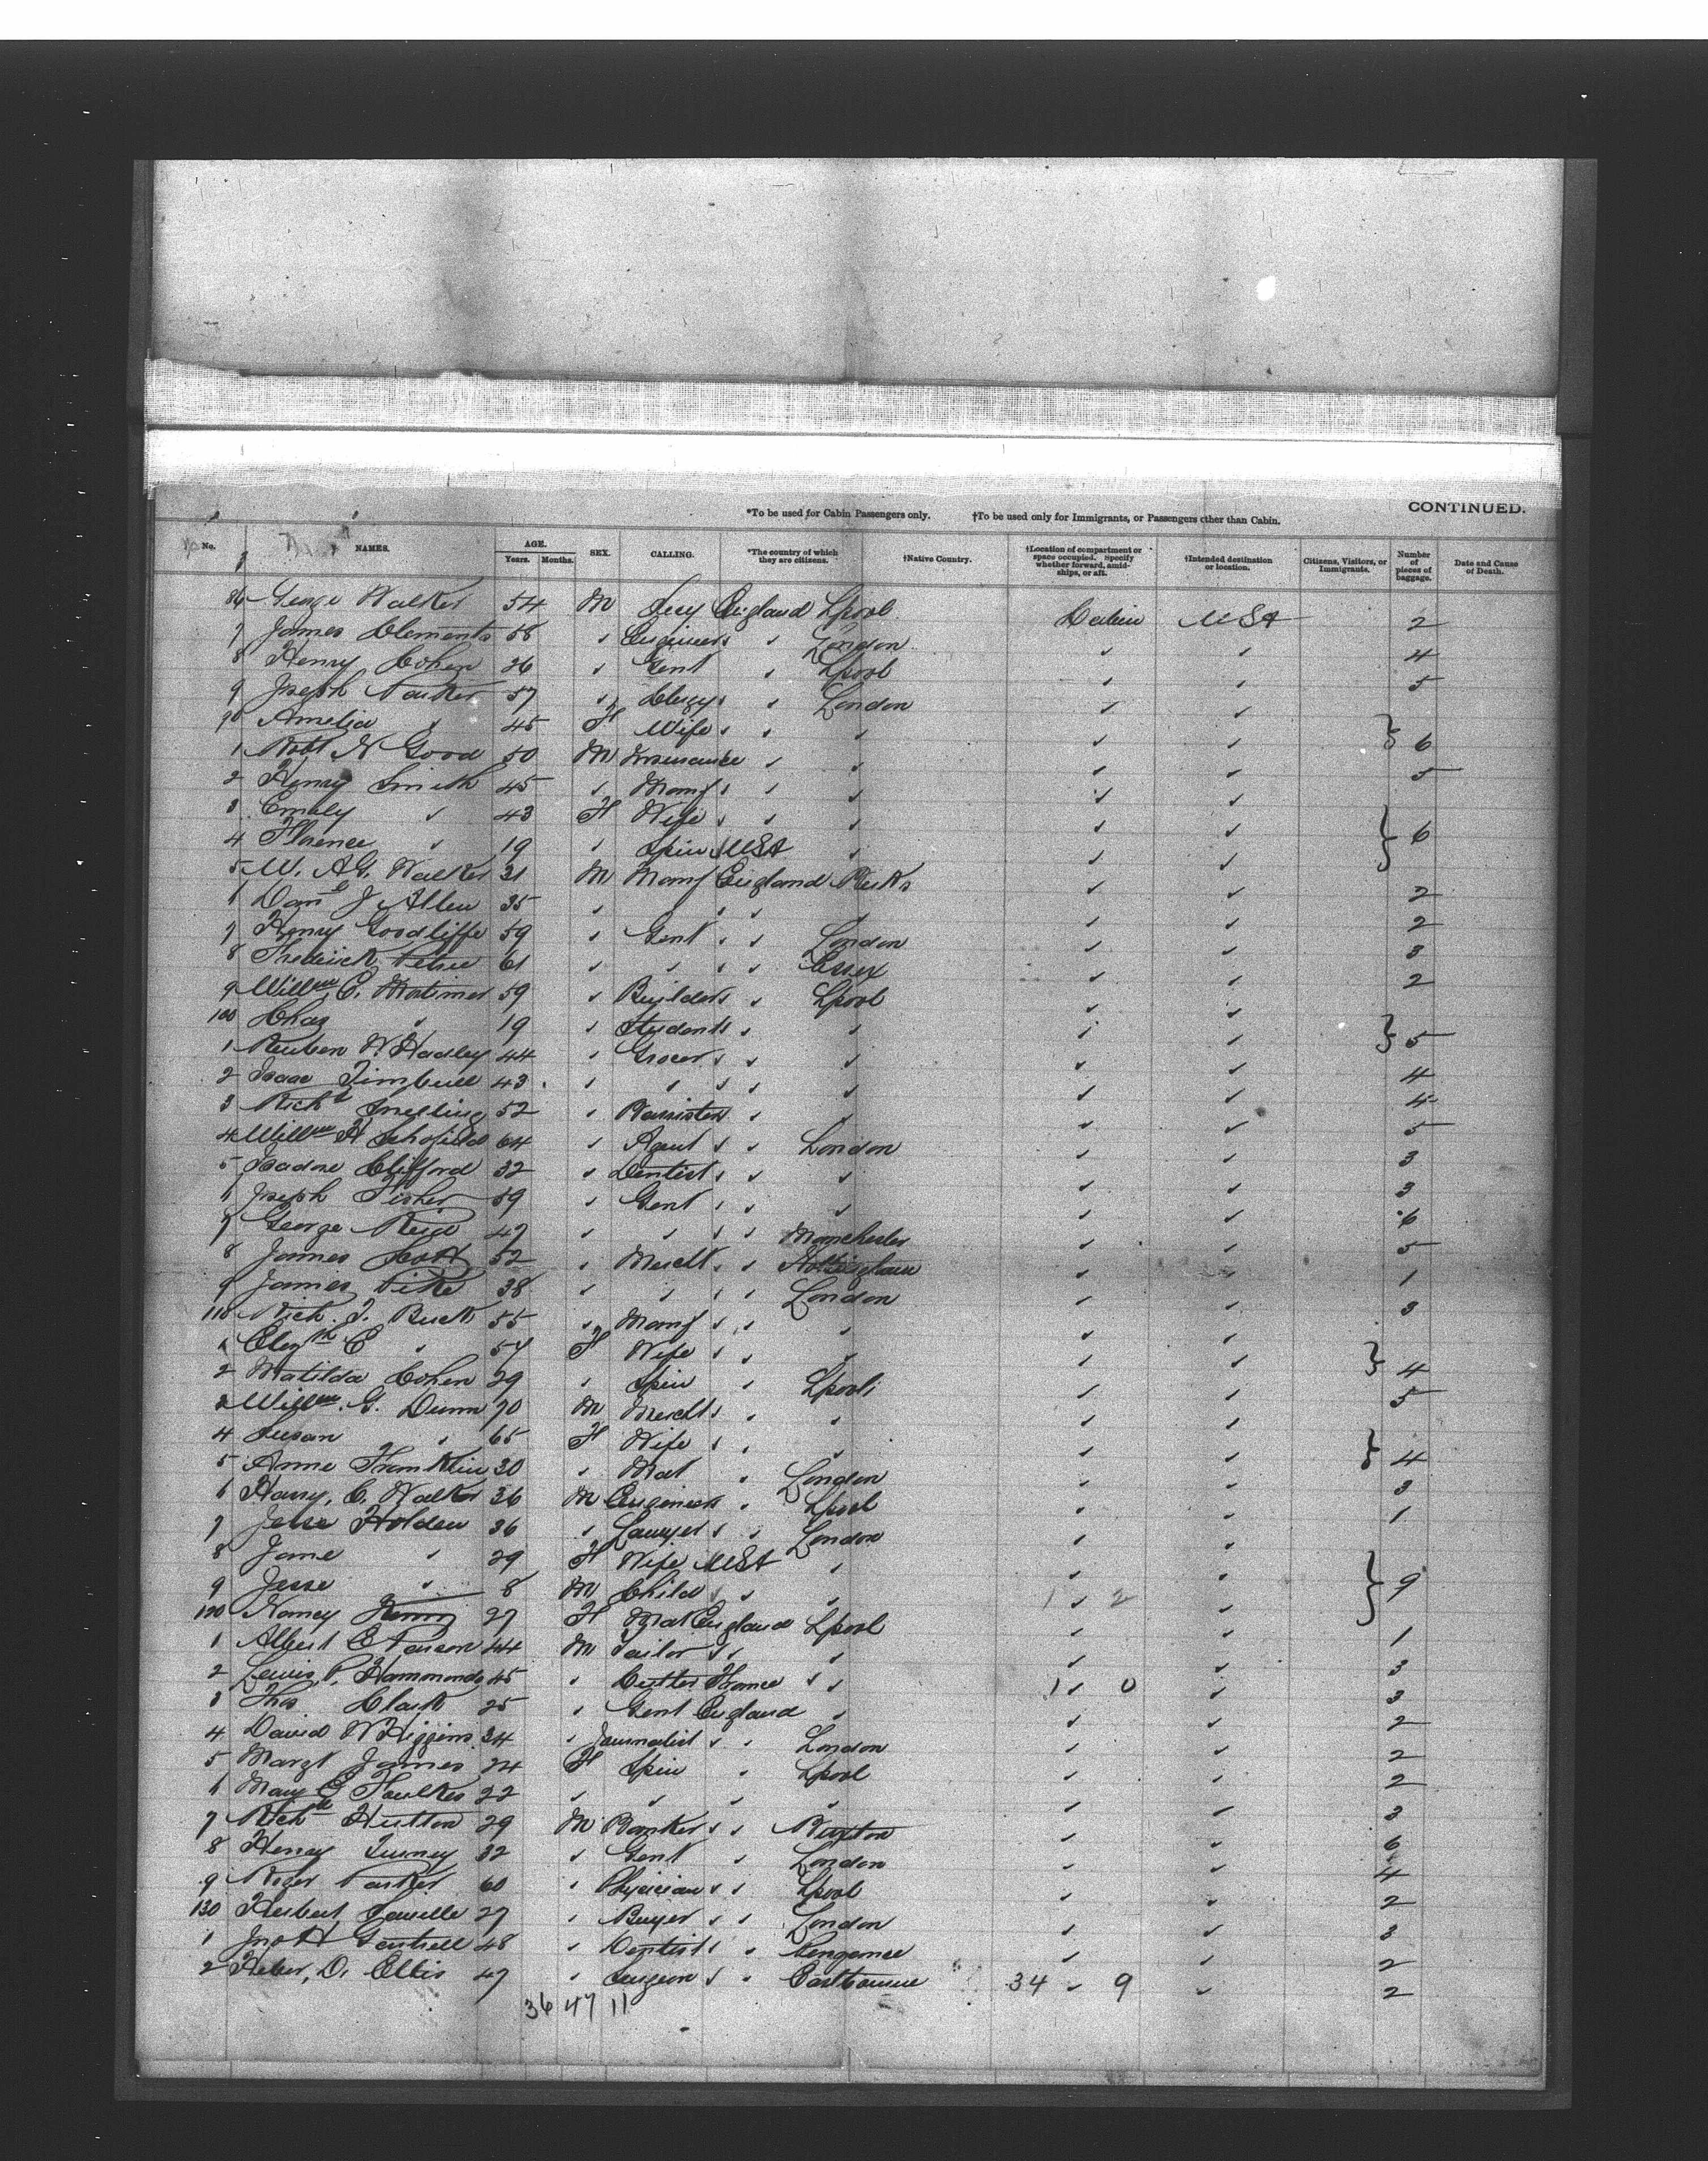 CONTINUED.
*To be used for Cabin Passengers only. †To be used only for Immigrants, or Passengers other than Cabin.
No. NAMES. AGE. Years. Months. SEX. CALLING. *The country of which they are citizens. †Native Country. †Location of compartment or space occupied. Specify whether forward, amidships, or aft. †Intended destination or location. Citizens, Visitors, or Immigrants. Number of pieces of baggage. Date and Cause of Death.
86 George Walker 54 M England Lpool Cabin USA 2
7 James Clements 58 " Engineer " " London " " 4
8 Henry Cohen 26 " Gent " Lpool " " 5
9 Joseph Parker 57 " Clergy " London " "
90 Amelia " 45 F Wife " " " " " } 6
1 Robt N Good 50 M Insurance " " " " 5
2 Henry Smith 45 " Manf " " " " "
3 Emily " 43 F Wife " " " " "
4 Florence " 19 " Spin " USA " " " } 6
5 W. AG. Walker 31 M Manf England " " 2
6 Danl J Allen 35 " " " " " 2
7 Henry Goodliffe 59 " Gent " " London " " 3
8 Frederick Petrie 61 " " " " Essex " " 2
9 Willm C. Mortimer 59 " Builder " " Lpool " "
100 Chas " 19 " Student " " " " " } 5
1 Reuben W Hadley 44 " Grocer " " " " " 4
2 Isaac Timbull 43 " " " " " " " 4
3 Richd Snelling 52 " Barrister " " " " 5
4 Willm H Schofield 64 " Agent " " London " " 3
5 Isadore Clifford 32 " Dentist " " " " " 3
6 Joseph Fisher 59 " Gent " " " " " 6
7 George Reid 47 " " " " Manchester " " 5
8 James Scott 52 " Mercht " " Nottingham " " 1
9 James Pike 38 " " " " London " " 3
110 Rich. J. Buck 55 " Manf " " " " "
1 Elizth E " 54 F Wife " " " " " } 4
2 Matilda Cohen 29 " Spin " Lpool " " 5
3 Willm. G. Dunn 70 M Mercht " " " " "
4 Susan " 65 F Wife " " " " " } 4
5 Anne Franklin 30 " Mat " London " " 3
6 Harry. C. Walker 36 M Engineer " Lpool " " 1
7 Jesse Holden 36 " Lawyer " " London " "
8 Jane " 29 F Wife USA " " "
9 Jesse " 8 M Child " " " 1 " 2 " } 9
120 Nancy Henry 27 F Mat England Lpool " " 1
1 Albert E Pearson 44 M Tailor " " " " " 3
2 Lewis P. Hammonds 45 " Cutter France " " 1 " 0 " 3
3 Thos Clark 25 " Gent England " " " 2
4 David W Higgins 34 " Journalist " " London " " 2
5 Margt James 24 F Spin " Lpool " " 2
6 Mary E Faulkes 22 " " " " " " 3
7 Richd Hutton 29 M Banker " " Buxton " " 6
8 Henry Turney 32 " Gent " London " " 4
9 Roger Parker 60 " Physician " " Lpool " " 2
130 Herbert Saville 27 " Buyer " " London " " 3
1 Jno H Gartrell 48 " Dentist " " Penzance " " 2
2 Heber, D. Ellis 47 " Surgeon " " Eastbourne 34 " 9 " 2
36 47 11